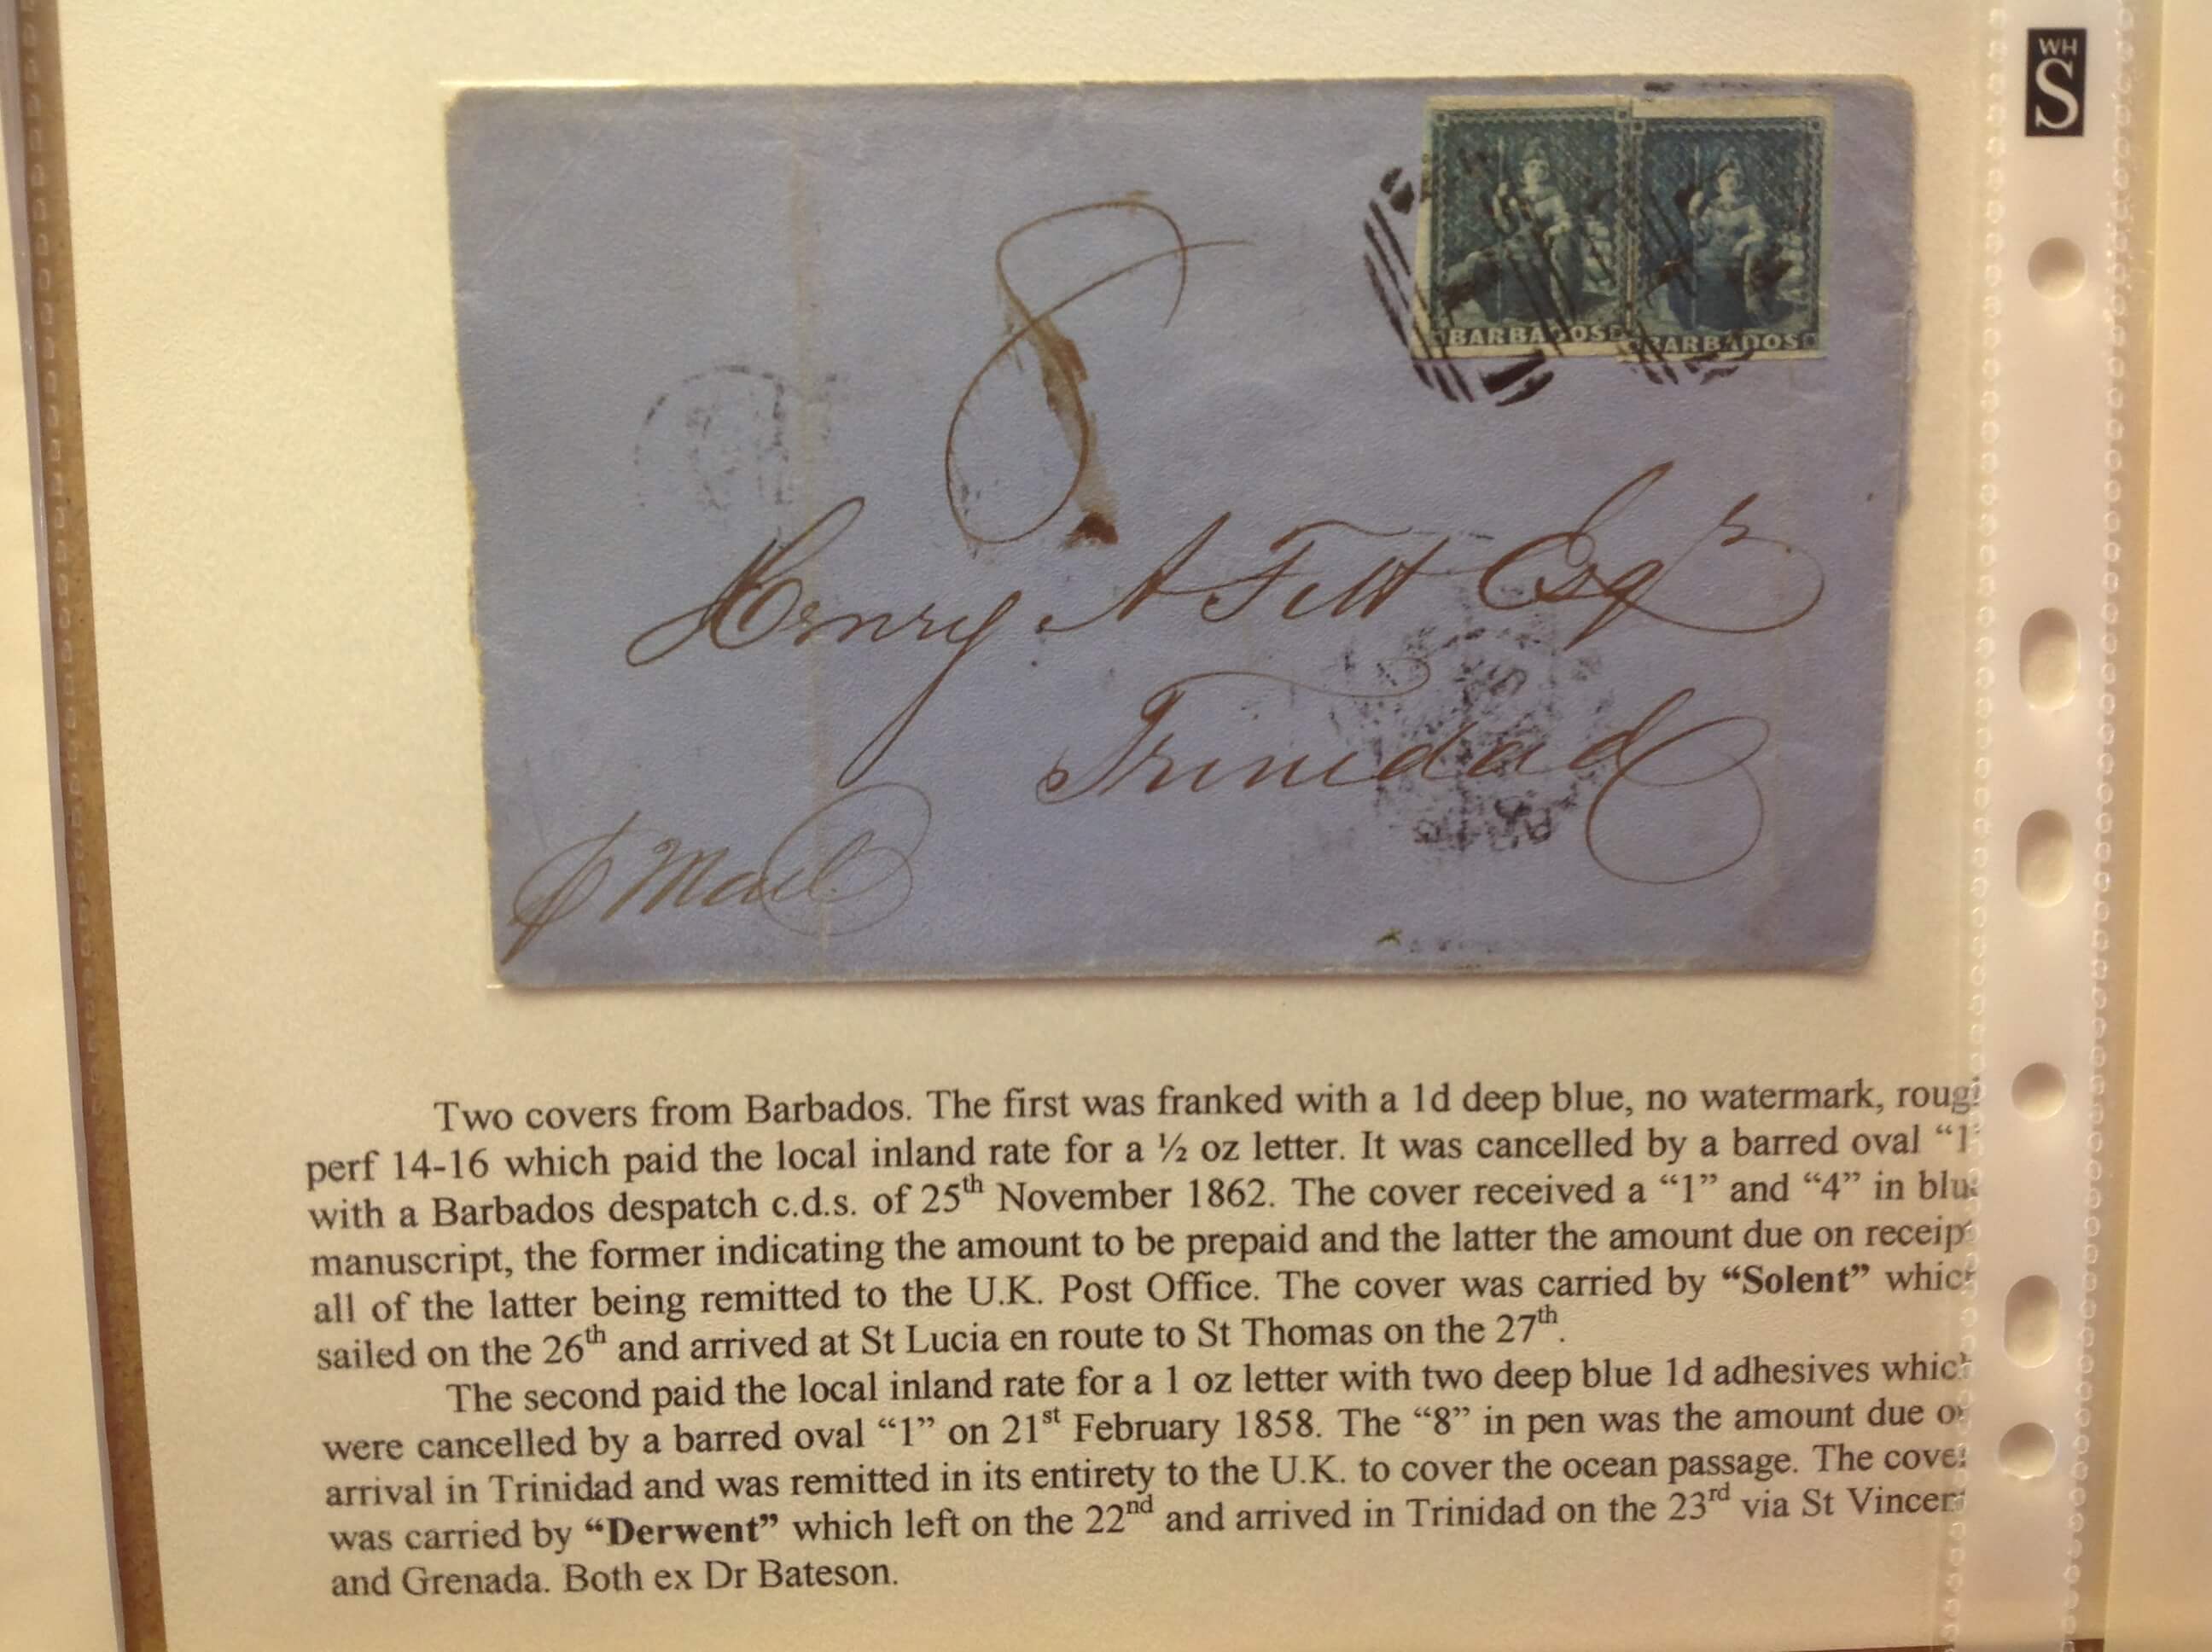 WH
S
BARBADOS
BARBADOS
8
Henry A Fitt Esqr
Trinidad
p Mail
Two covers from Barbados. The first was franked with a 1d deep blue, no watermark, roug
perf 14-16 which paid the local inland rate for a ½ oz letter. It was cancelled by a barred oval “1”
with a Barbados despatch c.d.s. of 25th November 1862. The cover received a “1” and “4” in blu
manuscript, the former indicating the amount to be prepaid and the latter the amount due on receip
all of the latter being remitted to the U.K. Post Office. The cover was carried by “Solent” which
sailed on the 26th and arrived at St Lucia en route to St Thomas on the 27th.
The second paid the local inland rate for a 1 oz letter with two deep blue 1d adhesives which
were cancelled by a barred oval “1” on 21st February 1858. The “8” in pen was the amount due on
arrival in Trinidad and was remitted in its entirety to the U.K. to cover the ocean passage. The cover
was carried by “Derwent” which left on the 22nd and arrived in Trinidad on the 23rd via St Vincen
and Grenada. Both ex Dr Bateson.